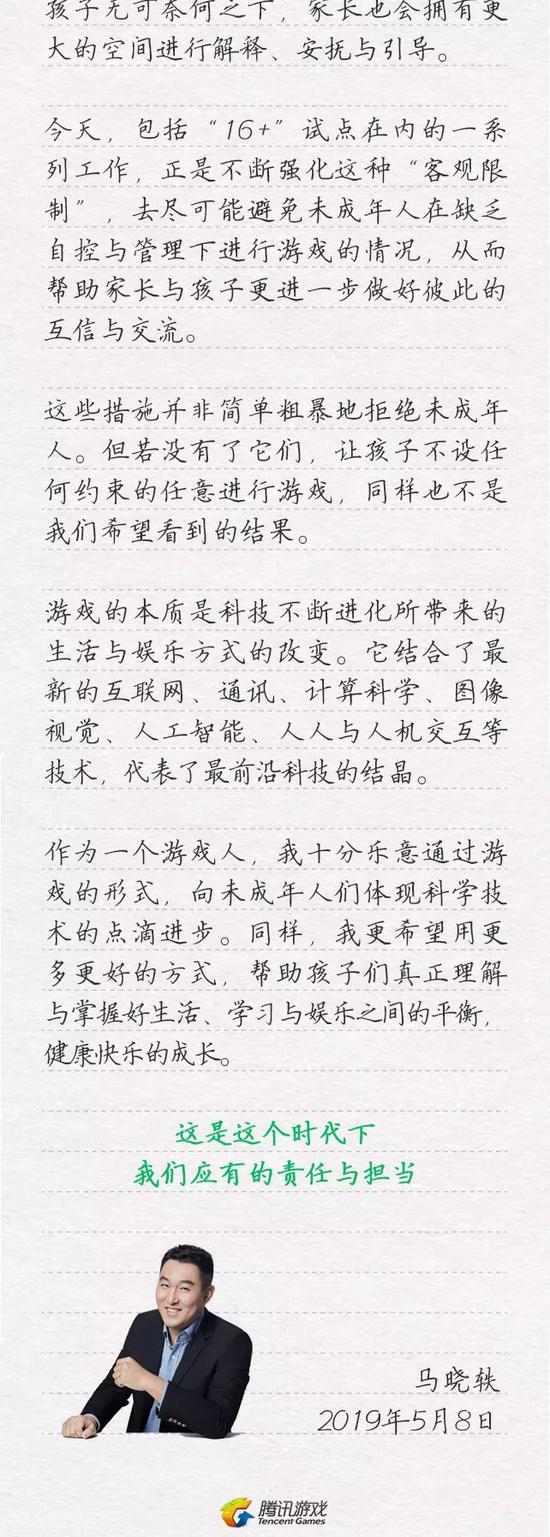 孩子无可奈何之下，家长也会拥有更
大的空间进行解释、安抚与引导。
今天，包括“16+”试点在内的一系
列工作，正是不断强化这种“客观限
制”，去尽可能避免未成年人在缺乏
自控与管理下进行游戏的情况，从而
帮助家长与孩子更进一步做好彼此的
互信与交流。
这些措施并非简单粗暴地拒绝未成年
人。但若没有了它们，让孩子不设任
何约束的任意进行游戏，同样也不是
我们希望看到的结果。
游戏的本质是科技不断进化所带来的
生活与娱乐方式的改变。它结合了最
新的互联网、通讯、计算科学、图像
视觉、人工智能、人人与人机交互等
技术，代表了最前沿科技的结晶。
作为一个游戏人，我十分乐意通过游
戏的形式，向未成年人们体现科学技
术的点滴进步。同样，我更希望用更
多更好的方式，帮助孩子们真正理解
与掌握好生活、学习与娱乐之间的平衡，
健康快乐的成长。
这是这个时代下
我们应有的责任与担当
马晓轶
2019年5月8日
腾讯游戏
Tencent Games